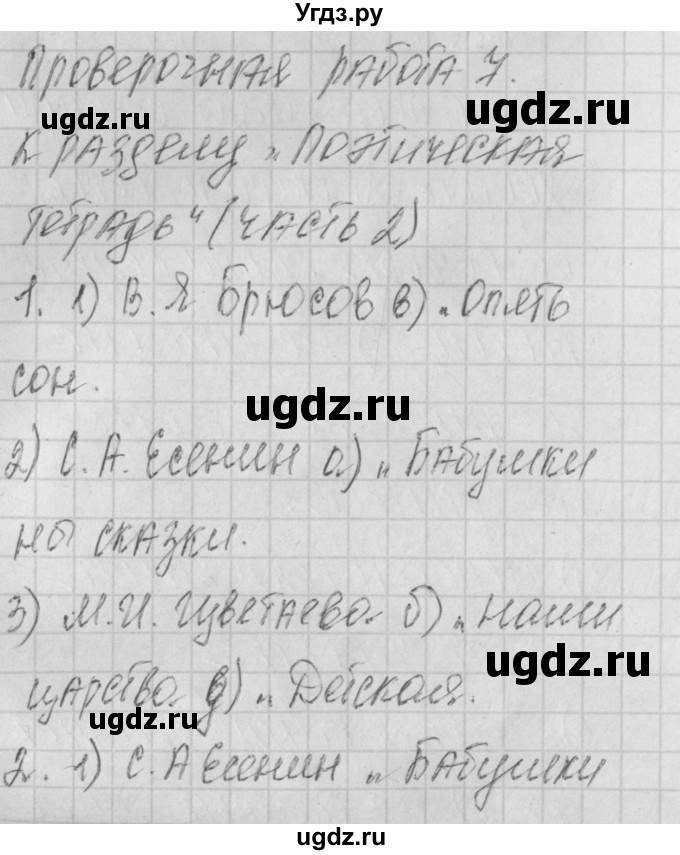 Угдз.ру
Проверочная работа 7.
ugdz.ru
ugdz.ru
К разделу „Поэтическая
тетрадь“ (часть 2)
1. 1) В.Я Брюсов в) „Опять
сон.
ugdz.ru
2) С.А. Есенин а) „Бабушки
ны сказки.
3) М.И. Цветаева б) „Наши
ugdz.ru
царства д) „Детская.
ugdz.ru
2. 1) С.А Есенин „Бабушки
ugdz.ru